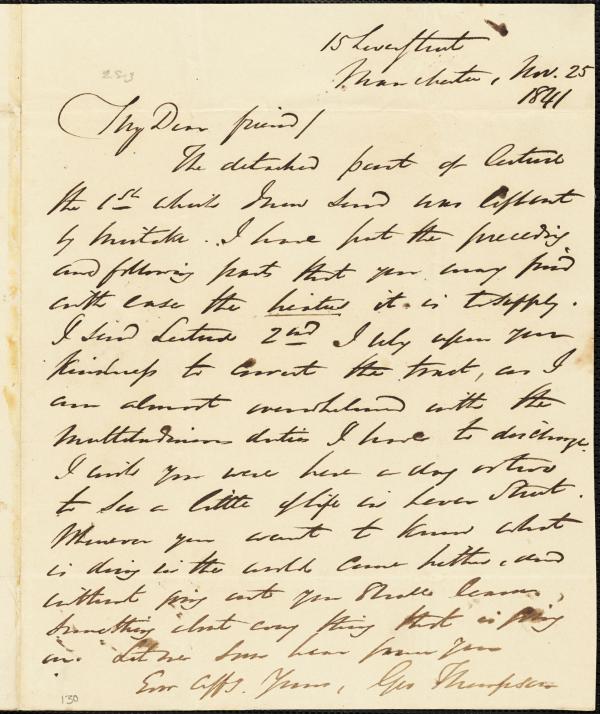 15 Lever Street
Manchester, Nov. 25
1841
253
My Dear friend/
The detached part of Lecture
the 1st which I now send was left out
by mistake. I have put the preceding
and following parts that you may find
with ease the hiatus it is to supply.
I send Lecture 2nd I rely upon your
kindness to correct the tract, as I
am almost overwhelmed with the
multitudinous duties I have to discharge.
I wish you were here a day or two
to see a little of life in Lever Street.
Whenever you want to know what
is doing in the world come hither, and
without going out you shall learn,
something about every thing that is going
on. Let me soon hear from you
Ever Affy. Yours, Geo Thompson
130